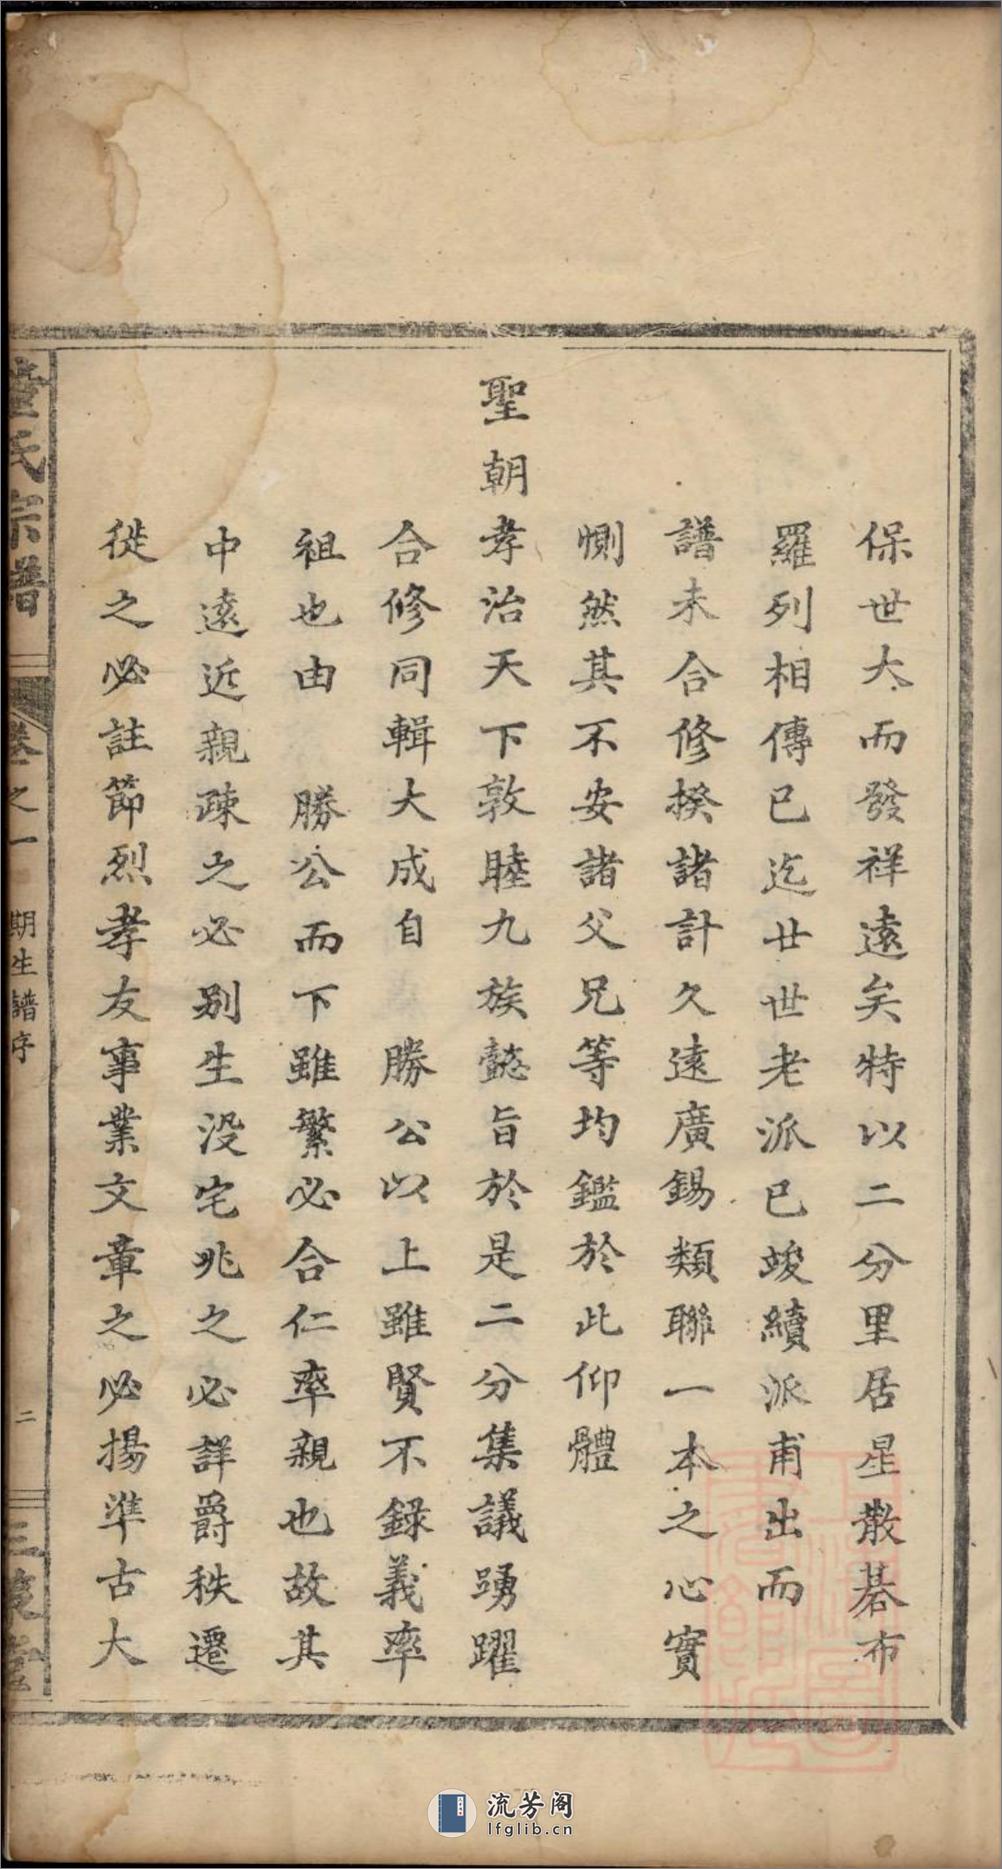 保世大而發祥遠矣特以二分里居星散碁布
羅列相傳已迄廿世老派已竣續派甫出而
譜未合修揆諸計久遠廣錫類聯一本之心實
惻然其不安諸父兄等均鑑於此仰體
聖朝孝治天下敦睦九族懿旨於是二分集議踴躍
合修同輯大成自 勝公以上雖賢不錄義率
祖也由 勝公而下雖繁必合仁率親也故其
中遠近親疎之必別生没宅兆之必詳爵秩遷
徙之必註節烈孝友事業文章之必揚準古大
董氏宗譜
卷之一
期生譜序
二
三策堂
流芳阁
lfglib.cn